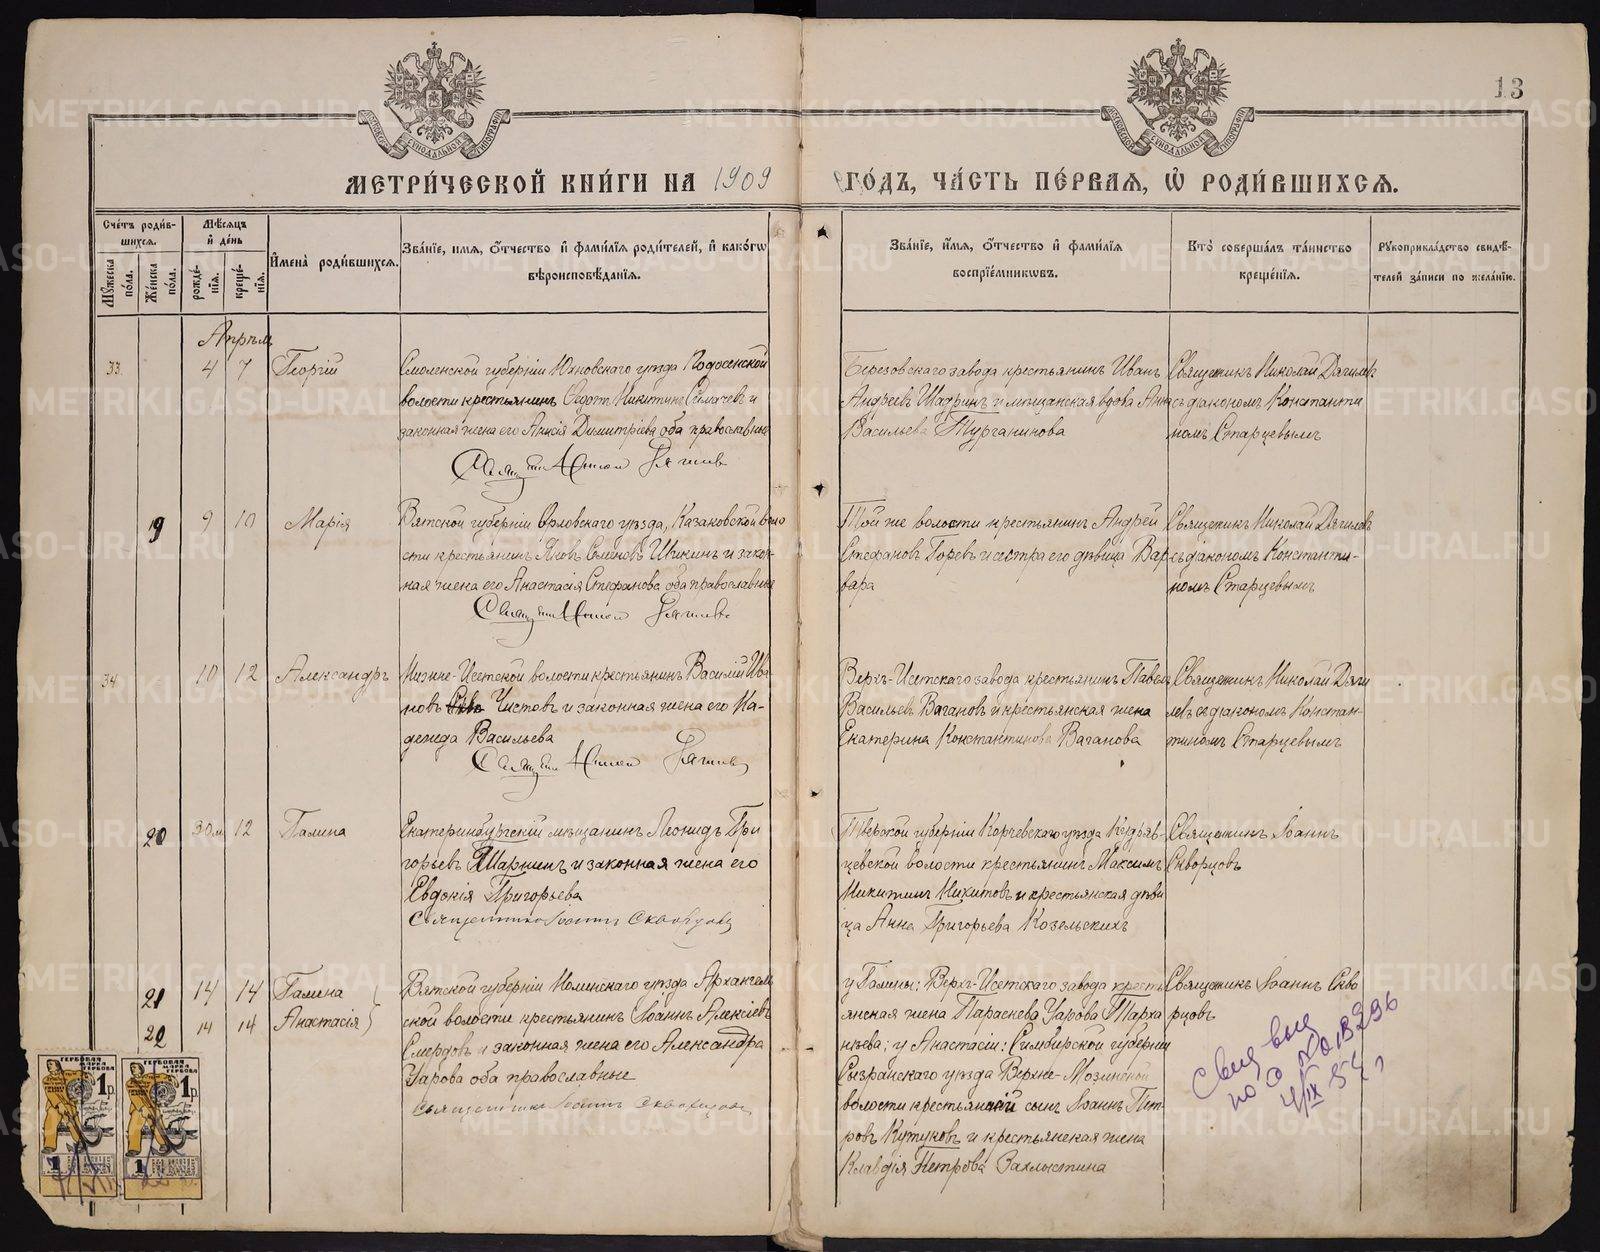 13
МЕТРИ́ЧЕСКОЙ КНИ́ГИ НА 1909 ГО́ДЪ, ЧА́СТЬ ПЕ́РВАЯ, Ѡ РОДИ́ВШИХСЯ.
Сче́тъ роди́вшихся.
Му́жеска по́ла.
Же́нска по́ла.
Мѣ́сяцъ и де́нь
рожде́нїя.
креще́нїя.
Имена̀ роди́вшихся.
Зва́нїе, имя, о́тчество и фами́лїя роди́телей, и како́гѡ вѣроисповѣ́данїя.
Зва́нїе, и́мя, о́тчество и фами́лїя воспрїе́мникѡвъ.
Кто̀ соверша́лъ та́инство креще́нїя.
Рукоприкла́дство свидѣ́телей за́писи по жела́нїю.
Апрѣль
33 4 7 Георгій
Смоленской губерніи Юхновскаго уѣзда
волости крестьянинъ Ѳедотъ Никитинъ и
законная жена его Анисія Димитріева оба православные
Березовскаго завода крестьянинъ Иванъ
Андреевъ Шадринъ и мѣщанская вдова Анна
Васильева Турганинова
Священникъ Николай Дягилевъ
съ діакономъ Константи
номъ Старцевымъ
19 9 10 Марія
Вятской губерніи Орловскаго уѣзда, Казаковской воло
сти крестьянинъ Яковъ Семеновъ Шикинъ и закон-
ная жена его Анастасія Стефанова оба православные
Той же волости крестьянинъ Андрей
Стефановъ Горевъ и сестра его дѣвица Вар
вара
Священникъ Николай Дягилевъ
съ діакономъ Константи-
номъ Старцевымъ
34 10 12 Александръ
Нижне-Исетской волости крестьянинъ Василій Ива
новъ Чистовъ и законная жена его На-
дежда Васильева
Верхъ-Исетскаго завода крестьянинъ Павелъ
Васильевъ Вагановъ и крестьянская жена
Екатерина Константинова Ваганова
Священникъ Николай Дяги
левъ съ діакономъ Констан-
тиномъ Старцевымъ
20 30 м 12 Галина
Екатеринбургскій мѣщанинъ Леонидъ Гри
горьевъ Шарнинъ и законная жена его
Евдокія Григорьева
Священникъ Іоаннъ Скворцовъ
Тверской губерніи Корчевскаго уѣзда Кудряв-
цевской волости крестьянинъ Максимъ
Никитинъ Никитовъ и крестьянская дѣви
ца Анна Григорьева Козельскихъ
Священникъ Іоаннъ
Скворцовъ
21 14 14 Галина
22 14 14 Анастасія
Вятской губерніи Нолинскаго уѣзда Архангель
ской волости крестьянинъ Іоаннъ Алексіевъ
Смердовъ и законная жена его Александра
Уарова оба православные
Священникъ Іоаннъ Скворцовъ
у Галины: Верхъ-Исетскаго завода кресть
янская жена Параскева Уарова Тарха
нѣева; у Анастасіи: Симбирской губерніи
Сызранскаго уѣзда Верхне-Мозинской
волости крестьянскій сынъ Іоаннъ Пет-
ровъ Кутуковъ и крестьянская жена
Клавдія Петрова Захлыстина
Священникъ Іоаннъ Скво
рцовъ
ГЕРБОВАЯ МАРКА
1 р.
1
ГЕРБОВАЯ МАРКА
1 р.
1
METRIKI.GASO-URAL.RU